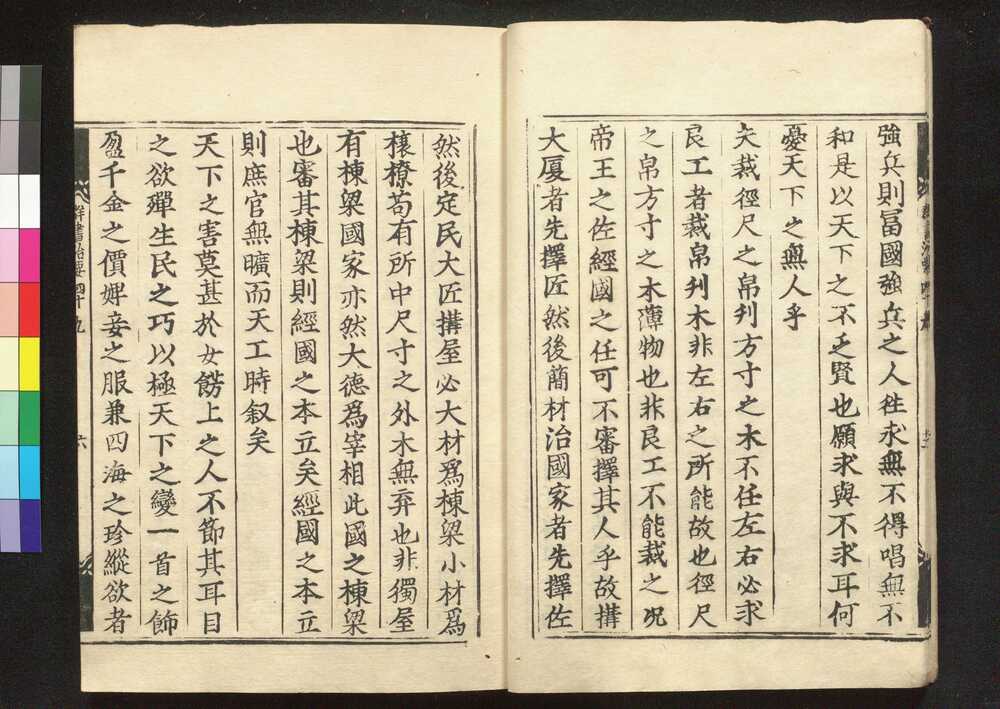 強兵則冨國強兵之人徃求無不得唱無不
和是以天下之不乏賢也願求與不求耳何
憂天下之無人乎
夫裁徑尺之帛刋方寸之木不任左右必求
良工者裁帛刋木非左右之所能故也徑尺
之帛方寸之木薄物也非良工不能裁之况
帝王之佐經國之任可不審擇其人乎故搆
大厦者先擇匠然後簡材治國家者先擇佐
然後定民大匠搆屋必大材爲棟梁小材爲
榱橑苟有所中尺寸之外木無弃也非獨屋
有棟梁國家亦然大德爲宰相此國之棟梁
也審其棟梁則經國之本立矣經國之本立
則庶官無曠而天工時叙矣
天下之害莫甚於女餝上之人不節其耳目
之欲殫生民之巧以極天下之變一首之飾
盈千金之價婢妾之服兼四海之珍縱欲者
群書治要四十九
六